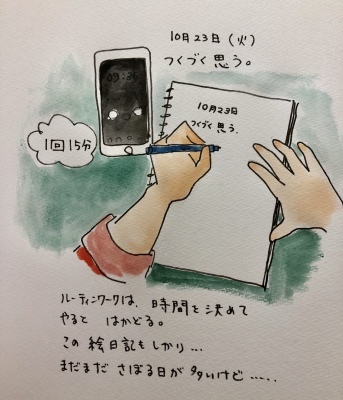 10月23日（火）
つくづく思う。
09:36
1回15分
10月23日
つくづく思う。
ルーティンワークは、時間を決めて
やると はかどる。
この絵日記もしかり…
まだまだ さぼる日が多いけど……